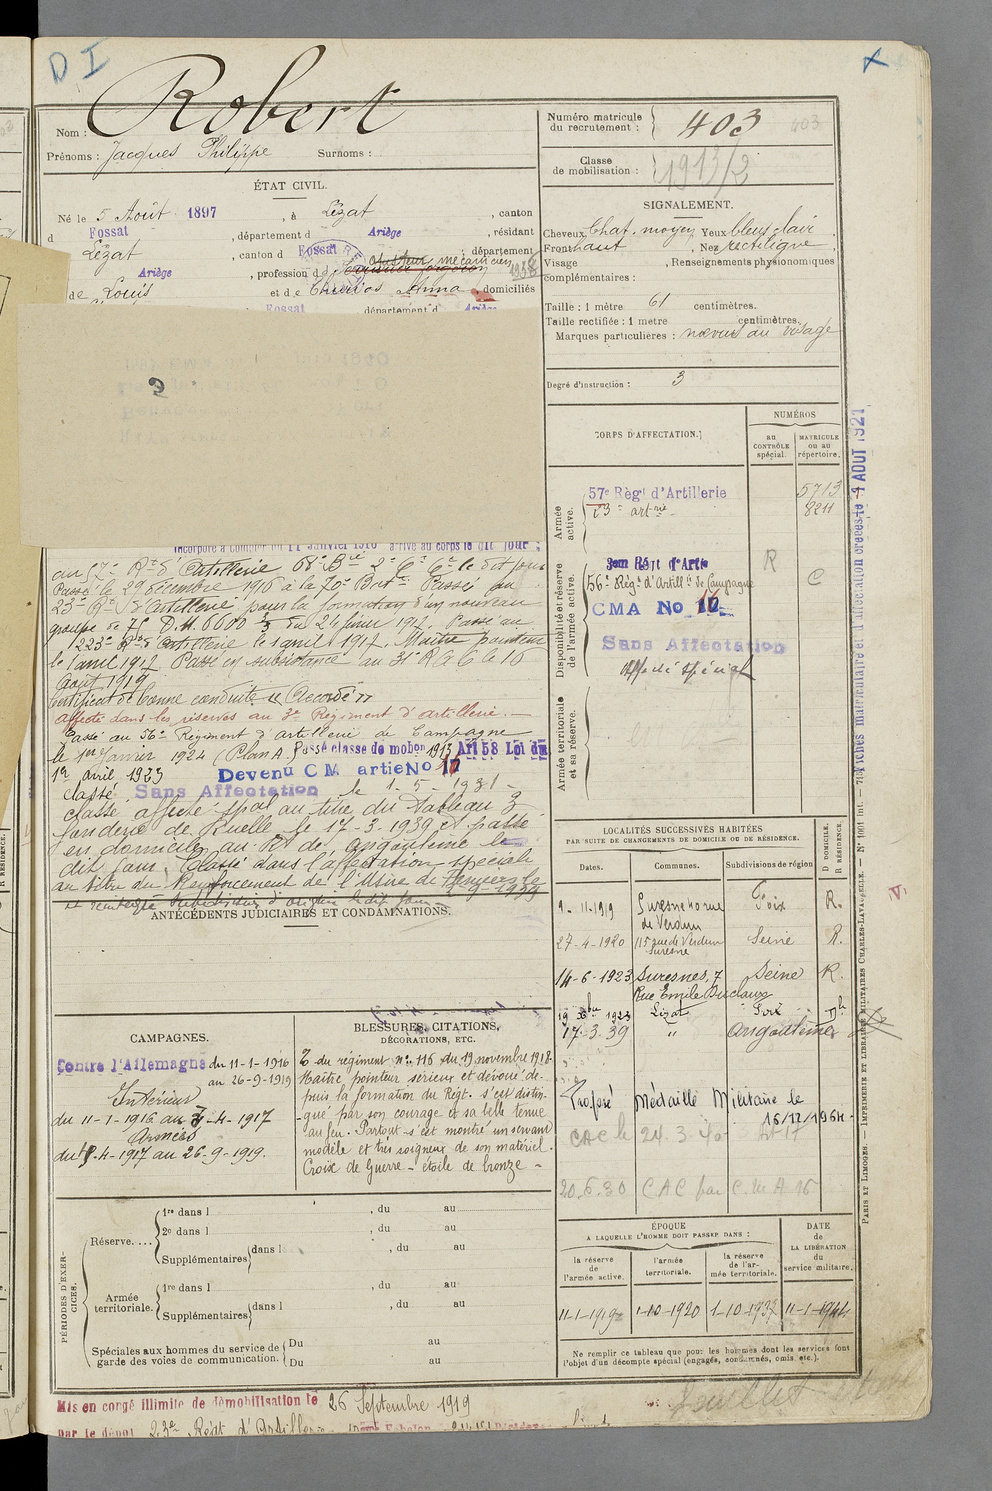 D I
Robert
Nom :
Prénoms : Jacques Philippe Surnoms :
Numéro matricule du recrutement : 403
Classe de mobilisation : 1913/2
ÉTAT CIVIL.
Né le 5 Août 1897, à Lézat, canton
d Fossat, département d Ariège, résidant
Lézat, canton d Fossat, département
Ariège, profession d ajusteur mécanicien
de Louis et de Anna, domiciliés
Fossat département d Ariège
SIGNALEMENT.
Cheveux Chat. moyen Yeux bleus clair
Front haut, Nez rectiligne
Visage, Renseignements physionomiques
complémentaires :
Taille : 1 mètre 61 centimètres.
Taille rectifiée : 1 mètre centimètres.
Marques particulières : nœvus au visage
Degré d'instruction : 3
CORPS D'AFFECTATION.
NUMÉROS
au CONTRÔLE spécial.
MATRICULE ou au répertoire.
Armée active.
57e Régt d'Artillerie 5713
23e artrie 8211
Disponibilité et réserve de l'armée active.
3em Régt d'Artie R
56e Régt d'Artillie de Campagne C
CMA No 17
Sans Affectation
Affecté spécial
Armée territoriale et sa réserve.
Incorporé à compter du 11 Janvier 1916 arrivé au corps le dit jour ;
au 57e Rt d'Artillerie 68e Brie 2e Cr le dit jour
Passé le 29 décembre 1916 à la 70e Batie Passé au
23e Rt d'Artillerie pour la formation d'un nouveau
groupe de 75 D.M. 6600 3/3 du 24 février 1917. Passé au
223e Rt d'Artillerie le 1 avril 1917. Maître pointeur
le 1 avril 1917 Passé en subsistance au 31e R A C le 16
Août 1919
Certificat de bonne conduite "Accordé"
Affecté dans les réserves au 3e Régiment d'artillerie.
Passé au 56e Régiment d'artillerie de Campagne
le 1er Janvier 1924 (Plan A) Passé classe de mobon 1913 Art 58 Loi du
1er avril 1923 Devenu C M artie No 17
Classé Sans Affectation le 1-5-1931
Classé affecté spal au titre du Tableau 3
fonderie de Ruelle le 17-3-1939 et passé
en domicile au Rt de Angoulême le
dit jour. Classé dans l'affectation spéciale
au titre du Renforcement de l'Usine de
et réintègre subdivision d'origine le dit jour
ANTÉCÉDENTS JUDICIAIRES ET CONDAMNATIONS.
LOCALITÉS SUCCESSIVES HABITÉES
PAR SUITE DE CHANGEMENTS DE DOMICILE OU DE RÉSIDENCE.
D DOMICILE.
R RÉSIDENCE.
Dates. Communes. Subdivisions de région
9-11-1919 Suresnes 10 rue de Verdun Foix R.
27-4-1920 115 rue de Verdun Suresne Seine R.
14-6-1923 Suresnes, 7 Rue Emile Duclaux Seine R.
19 Xbre 1923 Lézat Foix
17.3.39 " Angoulême
CAMPAGNES.
Contre l'Allemagne du 11-1-1916
au 26-9-1919
Intérieur
du 11-1-1916 au 7-4-1917
Armées
du 8-4-1917 au 26-9-1919.
BLESSURES, CITATIONS,
DÉCORATIONS, ETC.
O. du régiment no 116 du 19 novembre 1918.
Maître pointeur sérieux et dévoué de-
puis la formation du Régt. s'est distin-
-gué par son courage et sa belle tenue
au feu. Partout s'est montré un servant
modèle et très soigneux de son matériel.
Croix de Guerre - étoile de bronze -
Proposé Médaille Militaire le
16/12/196
CAC le 24.3.40
20.6.30 CAC par C.M.A 16
PÉRIODES D'EXERCICES.
Réserve....
1re dans l , du au
2e dans l , du au
Supplémentaires dans l , du au
Armée territoriale.
1re dans l , du au
Supplémentaires dans l , du au
Spéciales aux hommes du service de garde des voies de communication.
Du au
Du au
ÉPOQUE
A LAQUELLE L'HOMME DOIT PASSER DANS :
DATE de LA LIBÉRATION du service militaire.
la réserve de l'armée active.
l'armée territoriale.
la réserve de l'armée territoriale.
11-1-1919 1-10-1920 1-10-1937 11-1-1944
Ne remplir ce tableau que pour les hommes dont les services font
l'objet d'un décompte spécial (engagés, condamnés, omis etc.).
Mis en congé illimité de démobilisation le 26 Septembre 1919
par le dépôt 23e Régt d'Artillerie
Fiches matriculaire et d'affectation créées le 4 AOUT 1921
PARIS ET LIMOGES. — IMPRIMERIE ET LIBRAIRIE MILITAIRES CHARLES-LAVAUZELLE. — No 1001 int.